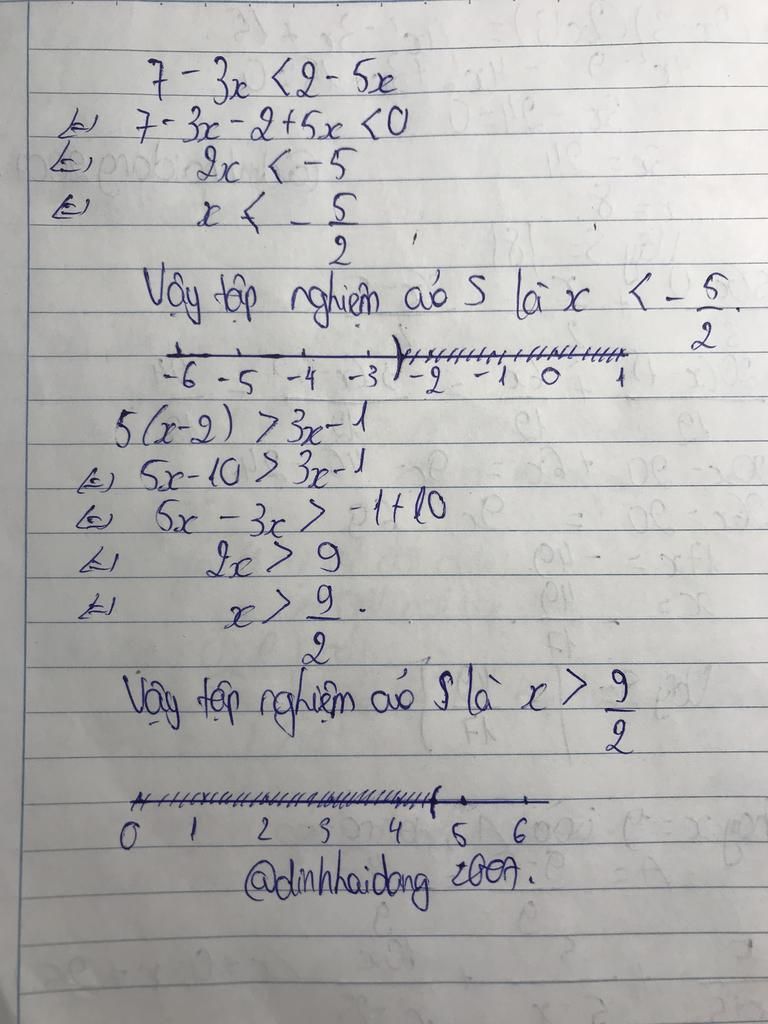 7 - 3x < 2 - 5x
⇔ 7 - 3x - 2 + 5x < 0
⇔ 2x < -5
⇔ x < -5/2
Vậy tập nghiệm của S là x < -5/2.
-6 -5 -4 -3 -2 -1 0 1
5(x-2) > 3x-1
⇔ 5x-10 > 3x-1
⇔ 5x - 3x > -1+10
⇔ 2x > 9
⇔ x > 9/2.
Vậy tập nghiệm của S là x > 9/2
0 1 2 3 4 5 6
@dinhhaidang